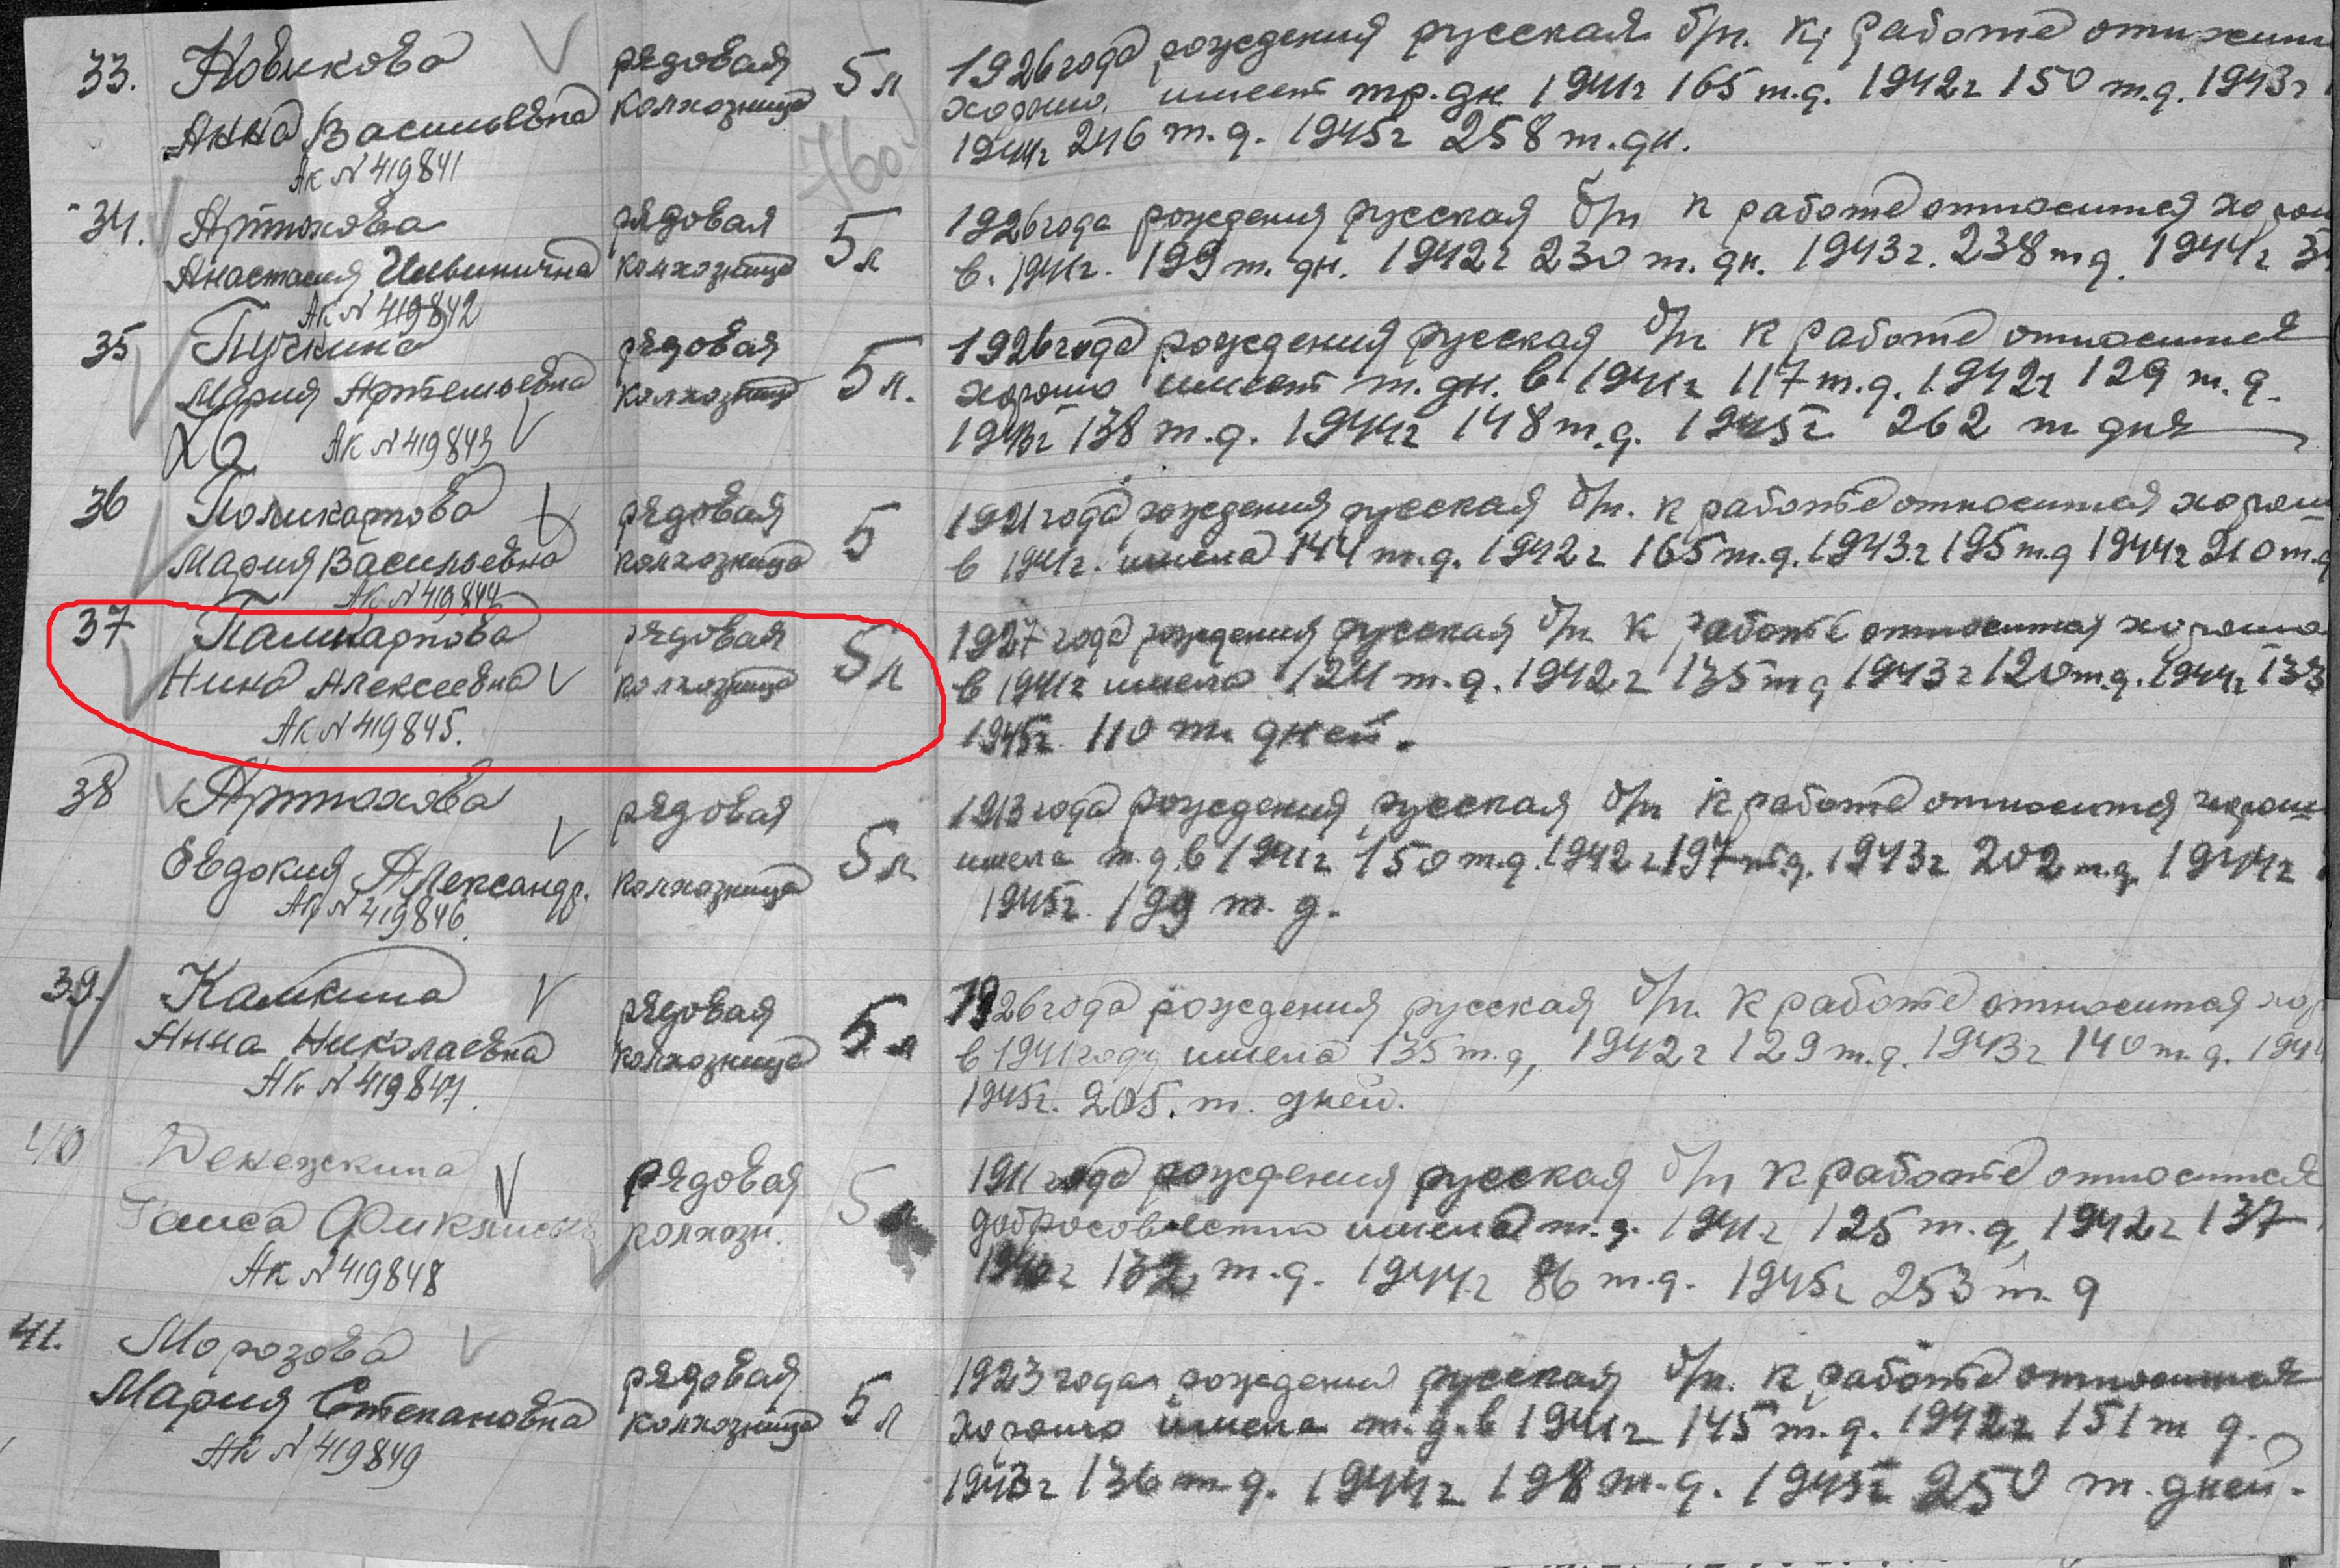 33. Новикова рядовая 5 л 1926 года рождения русская б/п. к работе
Анна Васильевна колхозница хорошо, имеет тр. дн 1941г 165 т.д. 1942г 150 т.д. 1943г
Ак N 419841 1944г 246 т.д. 1945г 258 т. дн.
760
34. Артюхова рядовая 5 л 1926 года рождения русская б/п к работе относится
Анастасия колхозница в. 1941г. 199 т. дн. 1942г 230 т. дн. 1943г. 238 т д. 1944г
Ак N 419842
35 Пучкина рядовая 5 л. 1926 года рождения русская б/п к работе относится
Мария Артемьевна колхозница хорошо имеет т. дн. в 1941г 117 т.д. 1942г 129 т.д.
Ак N 419843 1943г 138 т.д. 1944г 148 т.д. 1945г 262 т дня
36 Поликарпова рядовая 5 1921 года рождения русская б/п. к работе относится
Мария Васильевна колхозница в 1941г. имела 144 т.д. 1942г 165 т.д. 1943г 195 т.д 1944г 210 т.д
Ак N 419844
37 Паликарпова рядовая 5 л 1927 года рождения русская б/п к работе относится хорошо
Нина Алексеевна колхозница в 1941г имела 124 т.д. 1942г 135 т д 1943г 120 т.д. 1944г 133
Ак N 419845. 1945г. 110 т. дней.
38 Артюхова рядовая 5 л 1913 года рождения русская б/п к работе относится
Евдокия Александр. колхозница имела т.д. в 1941г 150 т.д. 1942г 197 т.д. 1943г 202 т.д. 1944г
Ак N 419846. 1945г. 199 т. д.
39. Камкина рядовая 5 л 1926 года рождения русская б/п. к работе относится
Анна Николаевна колхозница в 1941 году имела 135 т.д, 1942г 129 т.д. 1943г 140 т.д.
Ак N 419847. 1945г. 205. т. дней.
40 Денежкина рядовая 5 л 1911 года рождения русская б/п к работе относится
Таиса колхозн. добросовестно имела т.д. 1941г 125 т.д, 1942г 137
Ак N 419848 132 т.д. 1944г 86 т.д. 1945г 253 т. д
41. Морозова рядовая 5 л 1923 года рождения русская б/п. к работе относится
Мария Степановна колхозница хорошо имела т.д. в 1941г 145 т.д. 1942г 151 т д.
Ак N 419849 1943г 136 т.д. 1944г 198 т.д. 1945г 250 т. дней.